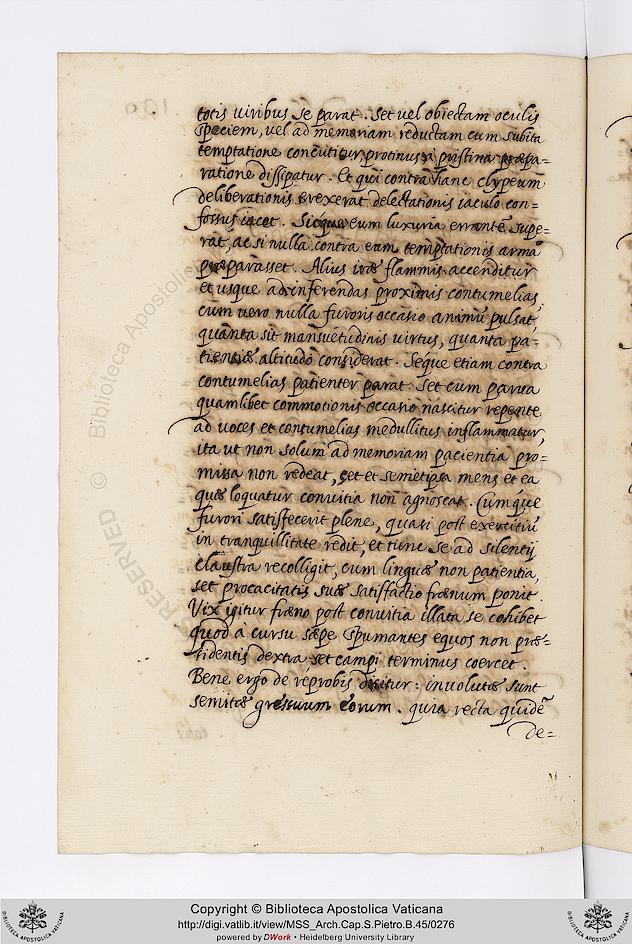 totis viribus se parat. Set vel obiectam oculis
speciem, vel ad memoriam reductam cum subita
temptatione concutitur, protinus à pristina præpa=
ratione dissipatur. Et qui contra hanc clypeum
deliberationis erexerat delectationis iaculo con=
fossus iacet. Sicque eum luxuria errantẽ supe=
rat, ac si nulla contra eam temptationis arma
præparasset. Alius iræ flammis accenditur
et usque ad inferendas proximis contumelias,
cum vero nulla furoris occasio animũ pulsat,
quanta sit mansuetudinis virtus, quanta pa=
tientiæ altitudo considerat. Seque etiam contra
contumelias patienter parat. Set cum parva
quamlibet commotionis occasio nascitur repente
ad voces et contumelias medullitus inflammatur,
ita ut non solum ad memoriam pacientia pro=
missa non redeat, set et semetipsa mens et ea
quæ loquatur convitia non agnoscat. Cumque
furori satisfecerit plene, quasi post exercitiũ
in tranquillitate redit, et tunc se ad silentij
claustra recolligit, cum linguæ non patientia,
set procacitatis suæ satisfactio frænum ponit.
Vix igitur fræno post convitia illata se cohibet
quod à cursu sæpe spumantes equos non præ=
sidentis dextra set campi terminus coercet.
Bene ergo de reprobis dicitur: involutæ sunt
semitæ gressuum eorum. quia recta quidẽ
de=
© Biblioteca Apostolica
RESERVED
Copyright © Biblioteca Apostolica Vaticana
http://digi.vatlib.it/view/MSS_Arch.Cap.S.Pietro.B.45/0276
powered by DWork • Heidelberg University Library